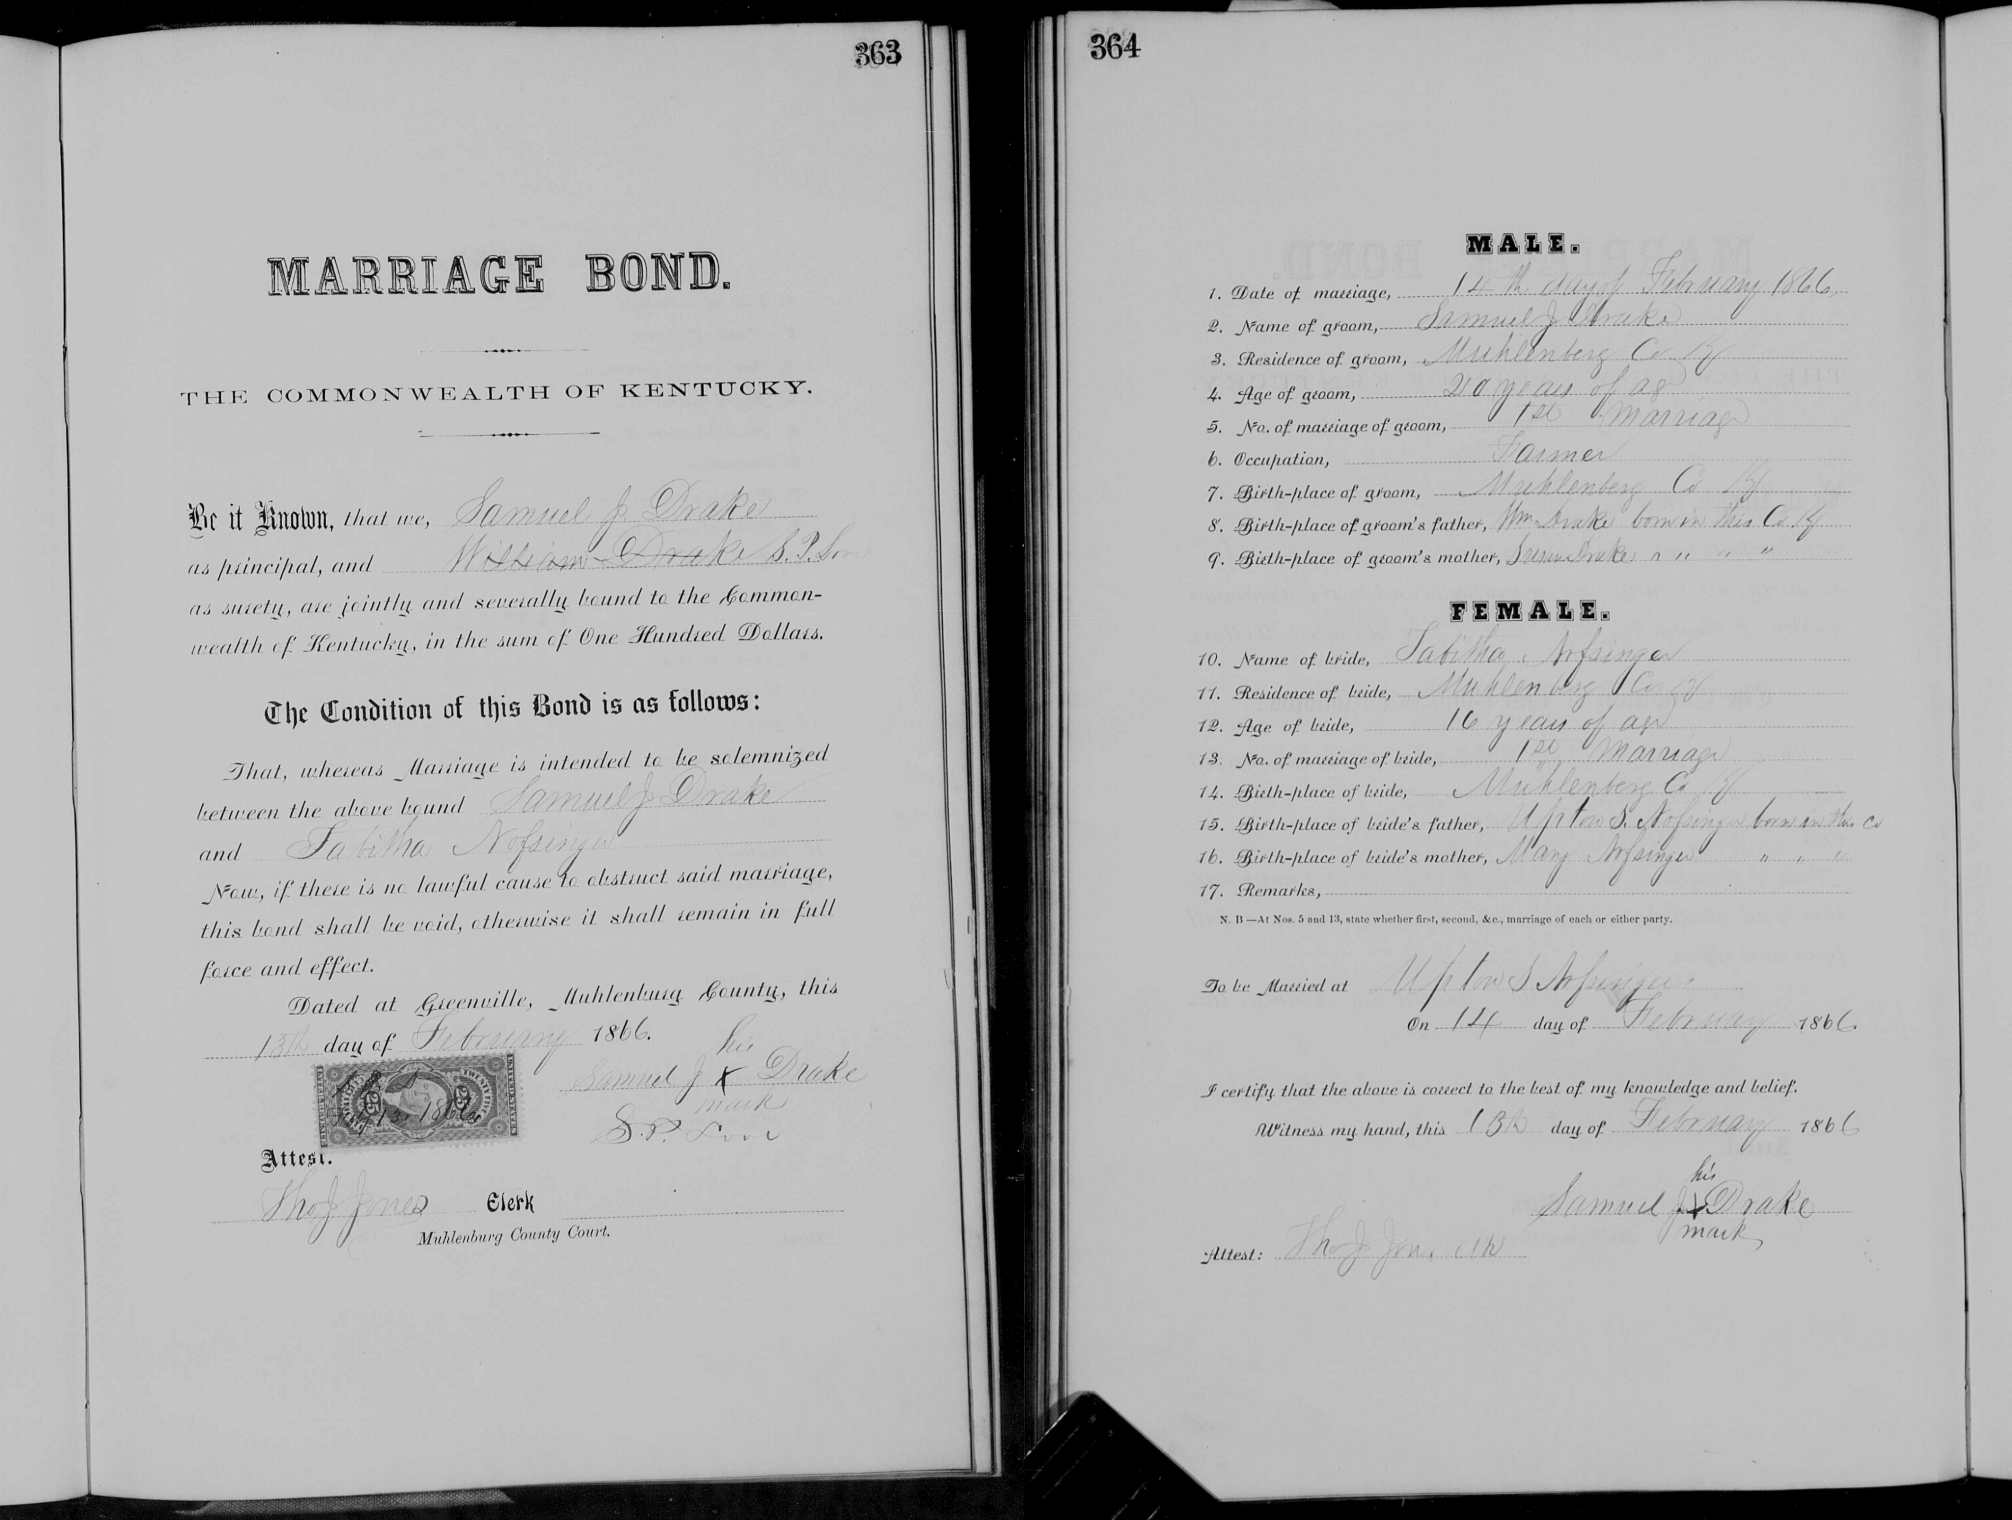 363
MARRIAGE BOND.
THE COMMONWEALTH OF KENTUCKY.
Be it Known, that we, Samuel J Drake
as principal, and William Drake S. P. Love
as surety, are jointly and severally bound to the Common-
wealth of Kentucky, in the sum of One Hundred Dollars.
The Condition of this Bond is as follows:
That, whereas Marriage is intended to be solemnized
between the above bound Samuel J Drake
and Tabitha Nofsinger
Now, if there is no lawful cause to obstruct said marriage,
this bond shall be void, otherwise it shall remain in full
force and effect.
Dated at Greenville, Muhlenburg County, this
13th day of February 1866.
his
Samuel J X Drake
mark
S. P. Love
25 25
Feby 13 1866
Attest.
Tho J Jones Clerk
Muhlenburg County Court.
364
MALE.
1. Date of marriage, 14th day of February 1866,
2. Name of groom, Samuel J Drake
3. Residence of groom, Muhlenberg Co Ky
4. Age of groom, 20 years of age
5. No. of marriage of groom, 1st Marriage
6. Occupation, Farmer
7. Birth-place of groom, Muhlenberg Co Ky
8. Birth-place of groom's father, Wm Drake born in this Co Ky
9. Birth-place of groom's mother, Susan Drake " " " "
FEMALE.
10. Name of bride, Tabitha Nofsinger
11. Residence of bride, Muhlenberg Co Ky
12. Age of bride, 16 years of age
13. No. of marriage of bride, 1st Marriage
14. Birth-place of bride, Muhlenberg Co Ky
15. Birth-place of bride's father, Upton S. Nofsinger born in this Co
16. Birth-place of bride's mother, Mary Nofsinger " " "
17. Remarks,
N. B —At Nos. 5 and 13, state whether first, second, &c., marriage of each or either party.
To be Married at Upton S Nofsingers
On 14 day of February 1866
I certify that the above is correct to the best of my knowledge and belief.
Witness my hand, this 13th day of February 1866
his
Samuel J X Drake
mark
Attest: Tho J Jones Clk